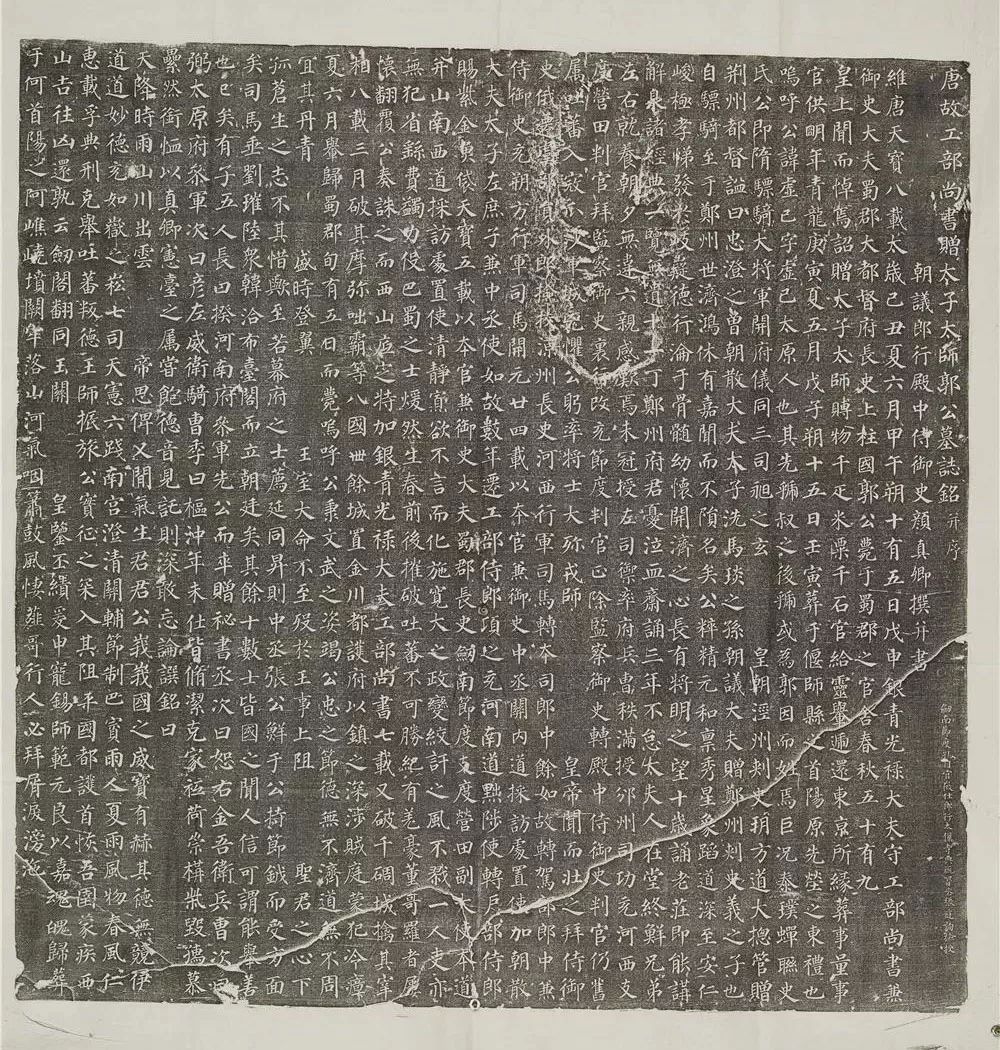 唐故工部尚書贈太子太師郭公墓誌銘 并序
朝議郎行殿中侍御史顏真卿撰并書
維唐天寶八載太歲己丑夏六月甲午朔十有五日戊申銀青光祿大夫守工部尚書兼
御史大夫蜀郡大都督府長史上柱國郭公薨于蜀郡之官舍春秋五十有九
皇上聞而悼焉詔贈太子太師賻物千疋米粟千石官給靈轝遞還東京所緣葬事量事
官供明年青龍庚寅夏五月戊子朔十五日壬寅葬于偃師縣之首陽原先塋之東禮也
嗚呼公諱虛己字虛己太原人也其先虢叔之後虢或為郭因而姓焉巨況泰璞蟬聯史
氏公即隋驃騎大將軍開府儀同三司昶之玄 皇朝涇州刺史朔方道大摠管贈
荊州都督謚曰忠澄之曾朝散大夫太子洗馬琰之孫朝議大夫贈鄭州刺史義之子也
自驃騎至于鄭州世濟鴻休有嘉聞而不隕名矣公粹精元和稟秀星象蹈道深至安仁
峻極孝悌發於岐嶷德行淪于骨髓幼懷開濟之心長有將明之望十歲誦老莊即能講
解泉諸經典一覽無遺十一丁鄭州府君憂泣血齋誦三年不怠太夫人在堂終鮮兄弟
左右就養朝夕無違六親感歎焉未冠授左司禦率府兵曹秩滿授邠州司功充河西支
度營田判官拜監察御史裏行改充節度判官正除監察御史轉殿中侍御史判官仍舊
屬吐蕃入寇 公躬率將士大殄戎師 皇帝聞而壯之拜侍御
史俄遷虞部員外郎檢校涼州長史河西行軍司馬轉本司郎中餘如故轉駕部郎中兼
侍御史充朔方行軍司馬開元廿四載以本官兼御史中丞關內道採訪處置使加朝散
大夫太子左庶子兼中丞使如故數年遷工部侍郎頃之充河南道黜陟使轉戶部侍郎
賜紫金魚袋天寶五載以本官兼御史大夫蜀郡長史劍南節度支度營田副大使本道
并山南西道採訪處置使清靜寡欲不言而化施寬大之政變絞訐之風不戮一人吏亦
無犯省繇費蠲力役巴蜀之士煖然生春前後摧破吐蕃不可勝紀有羌豪董哥羅者屢
懷翻覆公奏誅之而西山底定特加銀青光祿大夫工部尚書七載又破千碉城擒其宰
相八載三月破其摩彌咄霸等八國卌餘城置金川都護府以鎮之深涉賊庭蒙犯冷瘴
夏六月轝歸蜀郡旬有五日而薨嗚呼公秉文武之姿竭公忠之節德無不濟道無不周
宜其丹青 盛時登翼 王室大命不至歿於王事上阻 聖君之心下
孤蒼生之志不其惜歟至若幕府之士薦延同昇則中丞張公鮮于公持節鉞而受方面
矣司馬垂劉璀陸衆韓洽布臺閣而立朝廷矣其餘十數士皆國之聞人信可謂能舉善
也已矣有子五人長曰揆河南府參軍先公而卒贈秘書丞次曰恕右金吾衛兵曹次曰
弼太原府參軍次曰彥左威衛騎曹季曰樞沖年未仕皆脩潔克家祗荷崇構柴毀孺慕
纍然銜恤以真卿憲臺之屬嘗飽德音見託則深敢忘論譔銘曰
天降時雨山川出雲 帝思俾乂聞氣生君君公峩峩國之威寶有赫其德無競伊
道道妙德充如嶽之崧七司天憲六踐南宮澄清關輔節制巴賨雨人夏雨風物春風仁
惠載孚典刑克舉吐蕃叛德王師振旅公實征之罙入其阻平國都護首恢吾圉蒙疾西
山吉往凶還孰云劍閣翻同玉關 皇鑒丕績爰申寵錫師範元良以嘉魂魄歸葬
于何首陽之阿嶕嶢墳闕窣洛山河氣咽簫鼓風悽薤哥行人必拜屑淚滂沲